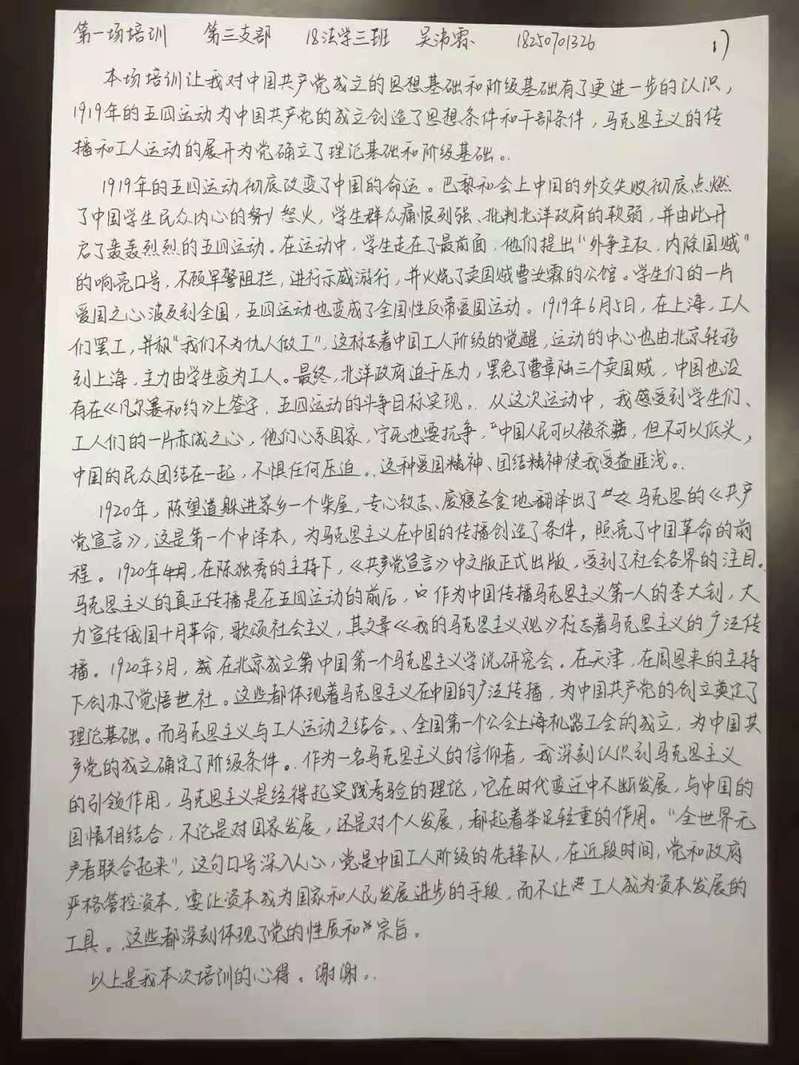 第一场培训 第三支部 18法学三班 吴沛霖 18250701326 1)
本场培训让我对中国共产党成立的思想基础和阶级基础有了更进一步的认识，
1919年的五四运动为中国共产党的成立创造了思想条件和干部条件，马克思主义的传
播和工人运动的展开为党确立了理论基础和阶级基础。
1919年的五四运动彻底改变了中国的命运。巴黎和会上中国的外交失败彻底点燃
了中国学生民众内心的怒火，学生群众痛恨列强、批判北洋政府的软弱，并由此开
启了轰轰烈烈的五四运动。在运动中，学生走在了最前面，他们提出“外争主权，内除国贼”
的响亮口号，不顾军警阻拦，进行示威游行，并火烧了卖国贼曹汝霖的公馆。学生们的一片
爱国之心波及到全国，五四运动也变成了全国性反帝爱国运动。1919年6月5日，在上海，工人
们罢工，并称“我们不为仇人做工”，这标志着中国工人阶级的觉醒，运动的中心也由北京转移
到上海，主力由学生变为工人。最终，北洋政府迫于压力，罢免了曹章陆三个卖国贼，中国也没
有在《凡尔赛和约》上签字，五四运动的斗争目标实现。从这次运动中，我感受到学生们、
工人们的一片赤诚之心，他们心系国家，宁死也要抗争，“中国人民可以被杀戮，但不可以低头，
中国的民众团结在一起，不惧任何压迫。这种爱国精神、团结精神使我受益匪浅。
1920年，陈望道躲进家乡一个柴屋，专心致志、废寝忘食地翻译出了马克思的《共产
党宣言》，这是第一个中译本，为马克思主义在中国的传播创造了条件，照亮了中国革命的前
程。1920年4月，在陈独秀的主持下，《共产党宣言》中文版正式出版，受到了社会各界的注目。
马克思主义的真正传播是在五四运动的前后，作为中国传播马克思主义第一人的李大钊，大
力宣传俄国十月革命，歌颂社会主义，其文章《我的马克思主义观》标志着马克思主义的广泛传
播。1920年3月，在北京成立中国第一个马克思主义学说研究会。在天津，在周恩来的主持
下创办了觉悟社。这些都体现着马克思主义在中国的广泛传播，为中国共产党的创立奠定了
理论基础。而马克思主义与工人运动之结合、全国第一个公会上海机器工会的成立，为中国共
产党的成立确定了阶级条件。作为一名马克思主义的信仰者，我深刻认识到马克思主义
的引领作用，马克思主义是经得起实践考验的理论，它在时代变迁中不断发展，与中国的
国情相结合，不论是对国家发展，还是对个人发展，都起着举足轻重的作用。“全世界无
产者联合起来”，这句口号深入人心，党是中国工人阶级的先锋队，在近段时间，党和政府
严格管控资本，要让资本成为国家和人民发展进步的手段，而不让工人成为资本发展的
工具。这些都深刻体现了党的性质和宗旨。
以上是我本次培训的心得。谢谢。